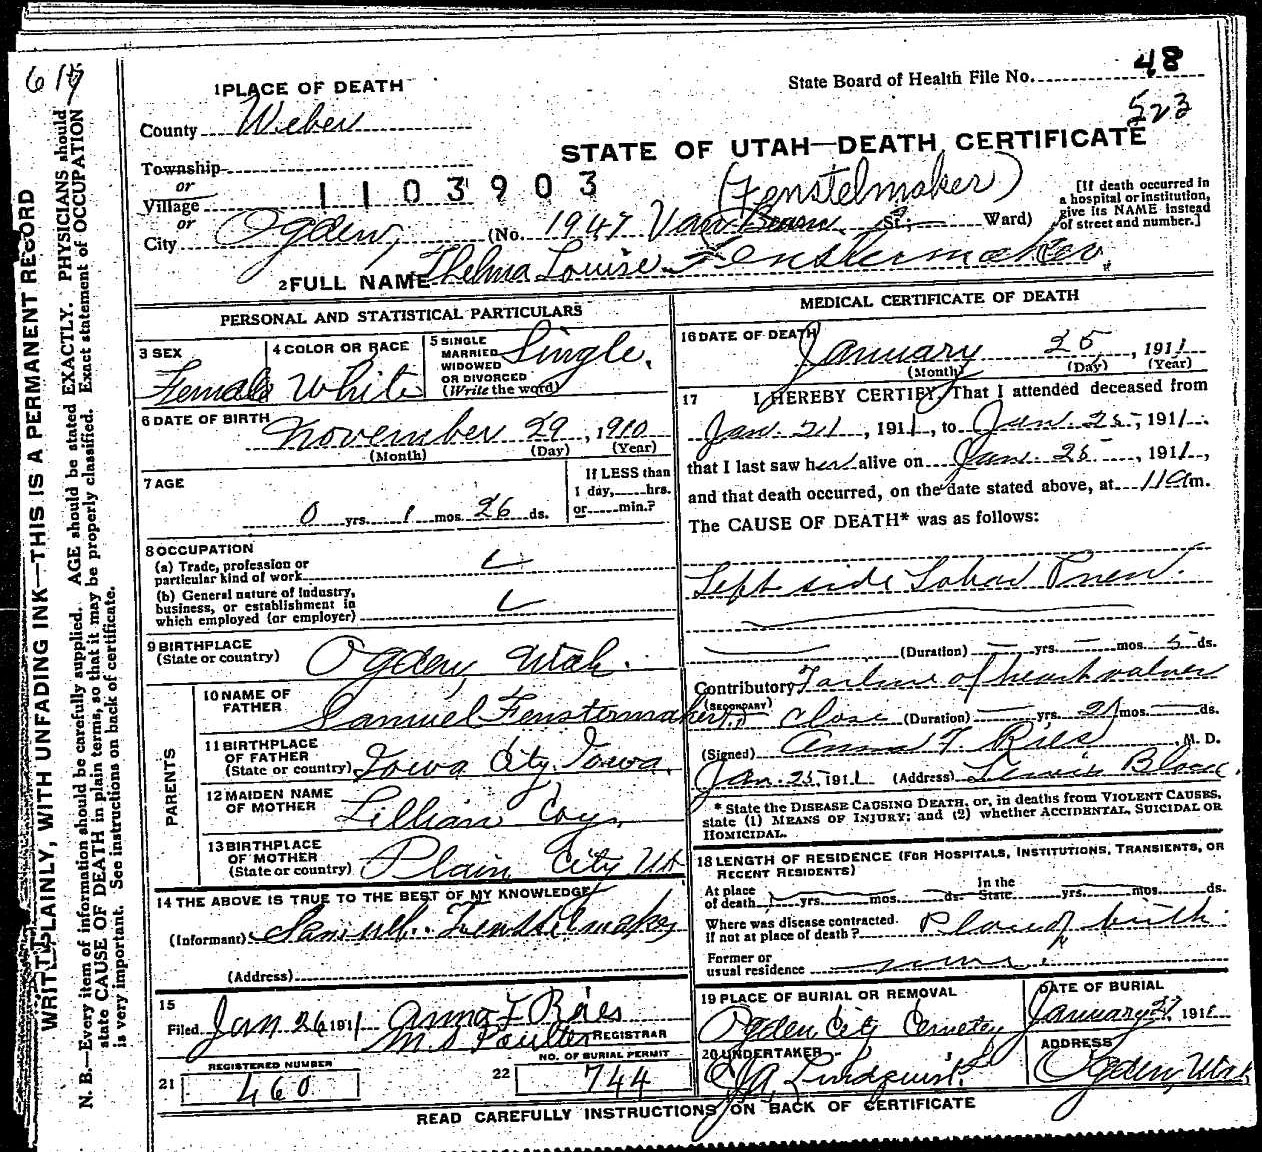 617
WRITE PLAINLY, WITH UNFADING INK—THIS IS A PERMANENT RECORD
N. B.—Every item of information should be carefully supplied. AGE should be stated EXACTLY. PHYSICIANS should
state CAUSE OF DEATH in plain terms, so that it may be properly classified. Exact statement of OCCUPATION
is very important. See instructions on back of certificate.
1 PLACE OF DEATH
State Board of Health File No. 48
523
County Weber
STATE OF UTAH—DEATH CERTIFICATE
Township
or
Village
1103903
(Fenstelmaker)
[If death occurred in
a hospital or institution,
give its NAME instead
of street and number.]
or
City Ogden, (No. 1947 Van Buren St.; Ward)
2 FULL NAME Thelma Louise Fenstermaker
PERSONAL AND STATISTICAL PARTICULARS
3 SEX
Female
4 COLOR OR RACE
White
5 SINGLE
MARRIED
WIDOWED
OR DIVORCED
(Write the word)
Single.
6 DATE OF BIRTH
November 29, 1910
(Month) (Day) (Year)
7 AGE
0 yrs. 1 mos. 26 ds.
If LESS than
1 day, hrs.
or min.?
8 OCCUPATION
(a) Trade, profession or
particular kind of work
(b) General nature of industry,
business, or establishment in
which employed (or employer)
9 BIRTHPLACE
(State or country)
Ogden, Utah.
PARENTS
10 NAME OF
FATHER
Samuel Fenstermaker
11 BIRTHPLACE
OF FATHER
(State or country)
Iowa City, Iowa
12 MAIDEN NAME
OF MOTHER
Lillian Coy
13 BIRTHPLACE
OF MOTHER
(State or country)
Plain City Ut
14 THE ABOVE IS TRUE TO THE BEST OF MY KNOWLEDGE
(Informant) Samuel Fenstelmaker
(Address)
15
Filed Jan 26 1911 Anna F Ries
M S Poulter REGISTRAR
21 REGISTERED NUMBER
460
22 NO. OF BURIAL PERMIT
744
MEDICAL CERTIFICATE OF DEATH
16 DATE OF DEATH
January 25, 1911
(Month) (Day) (Year)
17 I HEREBY CERTIFY, That I attended deceased from
Jan. 21, 1911, to Jan. 25, 1911.
that I last saw her alive on Jan. 25, 1911,
and that death occurred, on the date stated above, at 11 am.
The CAUSE OF DEATH* was as follows:
Left side Lobar Pneu.
(Duration) yrs. mos. 5 ds.
Contributory Failure of heart valves
(SECONDARY)
to close (Duration) yrs. mos. ds.
(Signed) Anna F. Ries, M. D.
Jan. 25, 1911 (Address) Lewis Block
* State the DISEASE CAUSING DEATH, or, in deaths from VIOLENT CAUSES,
state (1) MEANS OF INJURY; and (2) whether ACCIDENTAL, SUICIDAL OR
HOMICIDAL.
18 LENGTH OF RESIDENCE (FOR HOSPITALS, INSTITUTIONS, TRANSIENTS, OR
RECENT RESIDENTS)
At place
of death yrs. mos. ds.
In the
State yrs. mos. ds.
Where was disease contracted.
if not at place of death? Place of birth.
Former or
usual residence same.
19 PLACE OF BURIAL OR REMOVAL
Ogden City Cemetey
DATE OF BURIAL
January 27 1911
20 UNDERTAKER
J A Lindquist
ADDRESS
Ogden, Utah
READ CAREFULLY INSTRUCTIONS ON BACK OF CERTIFICATE